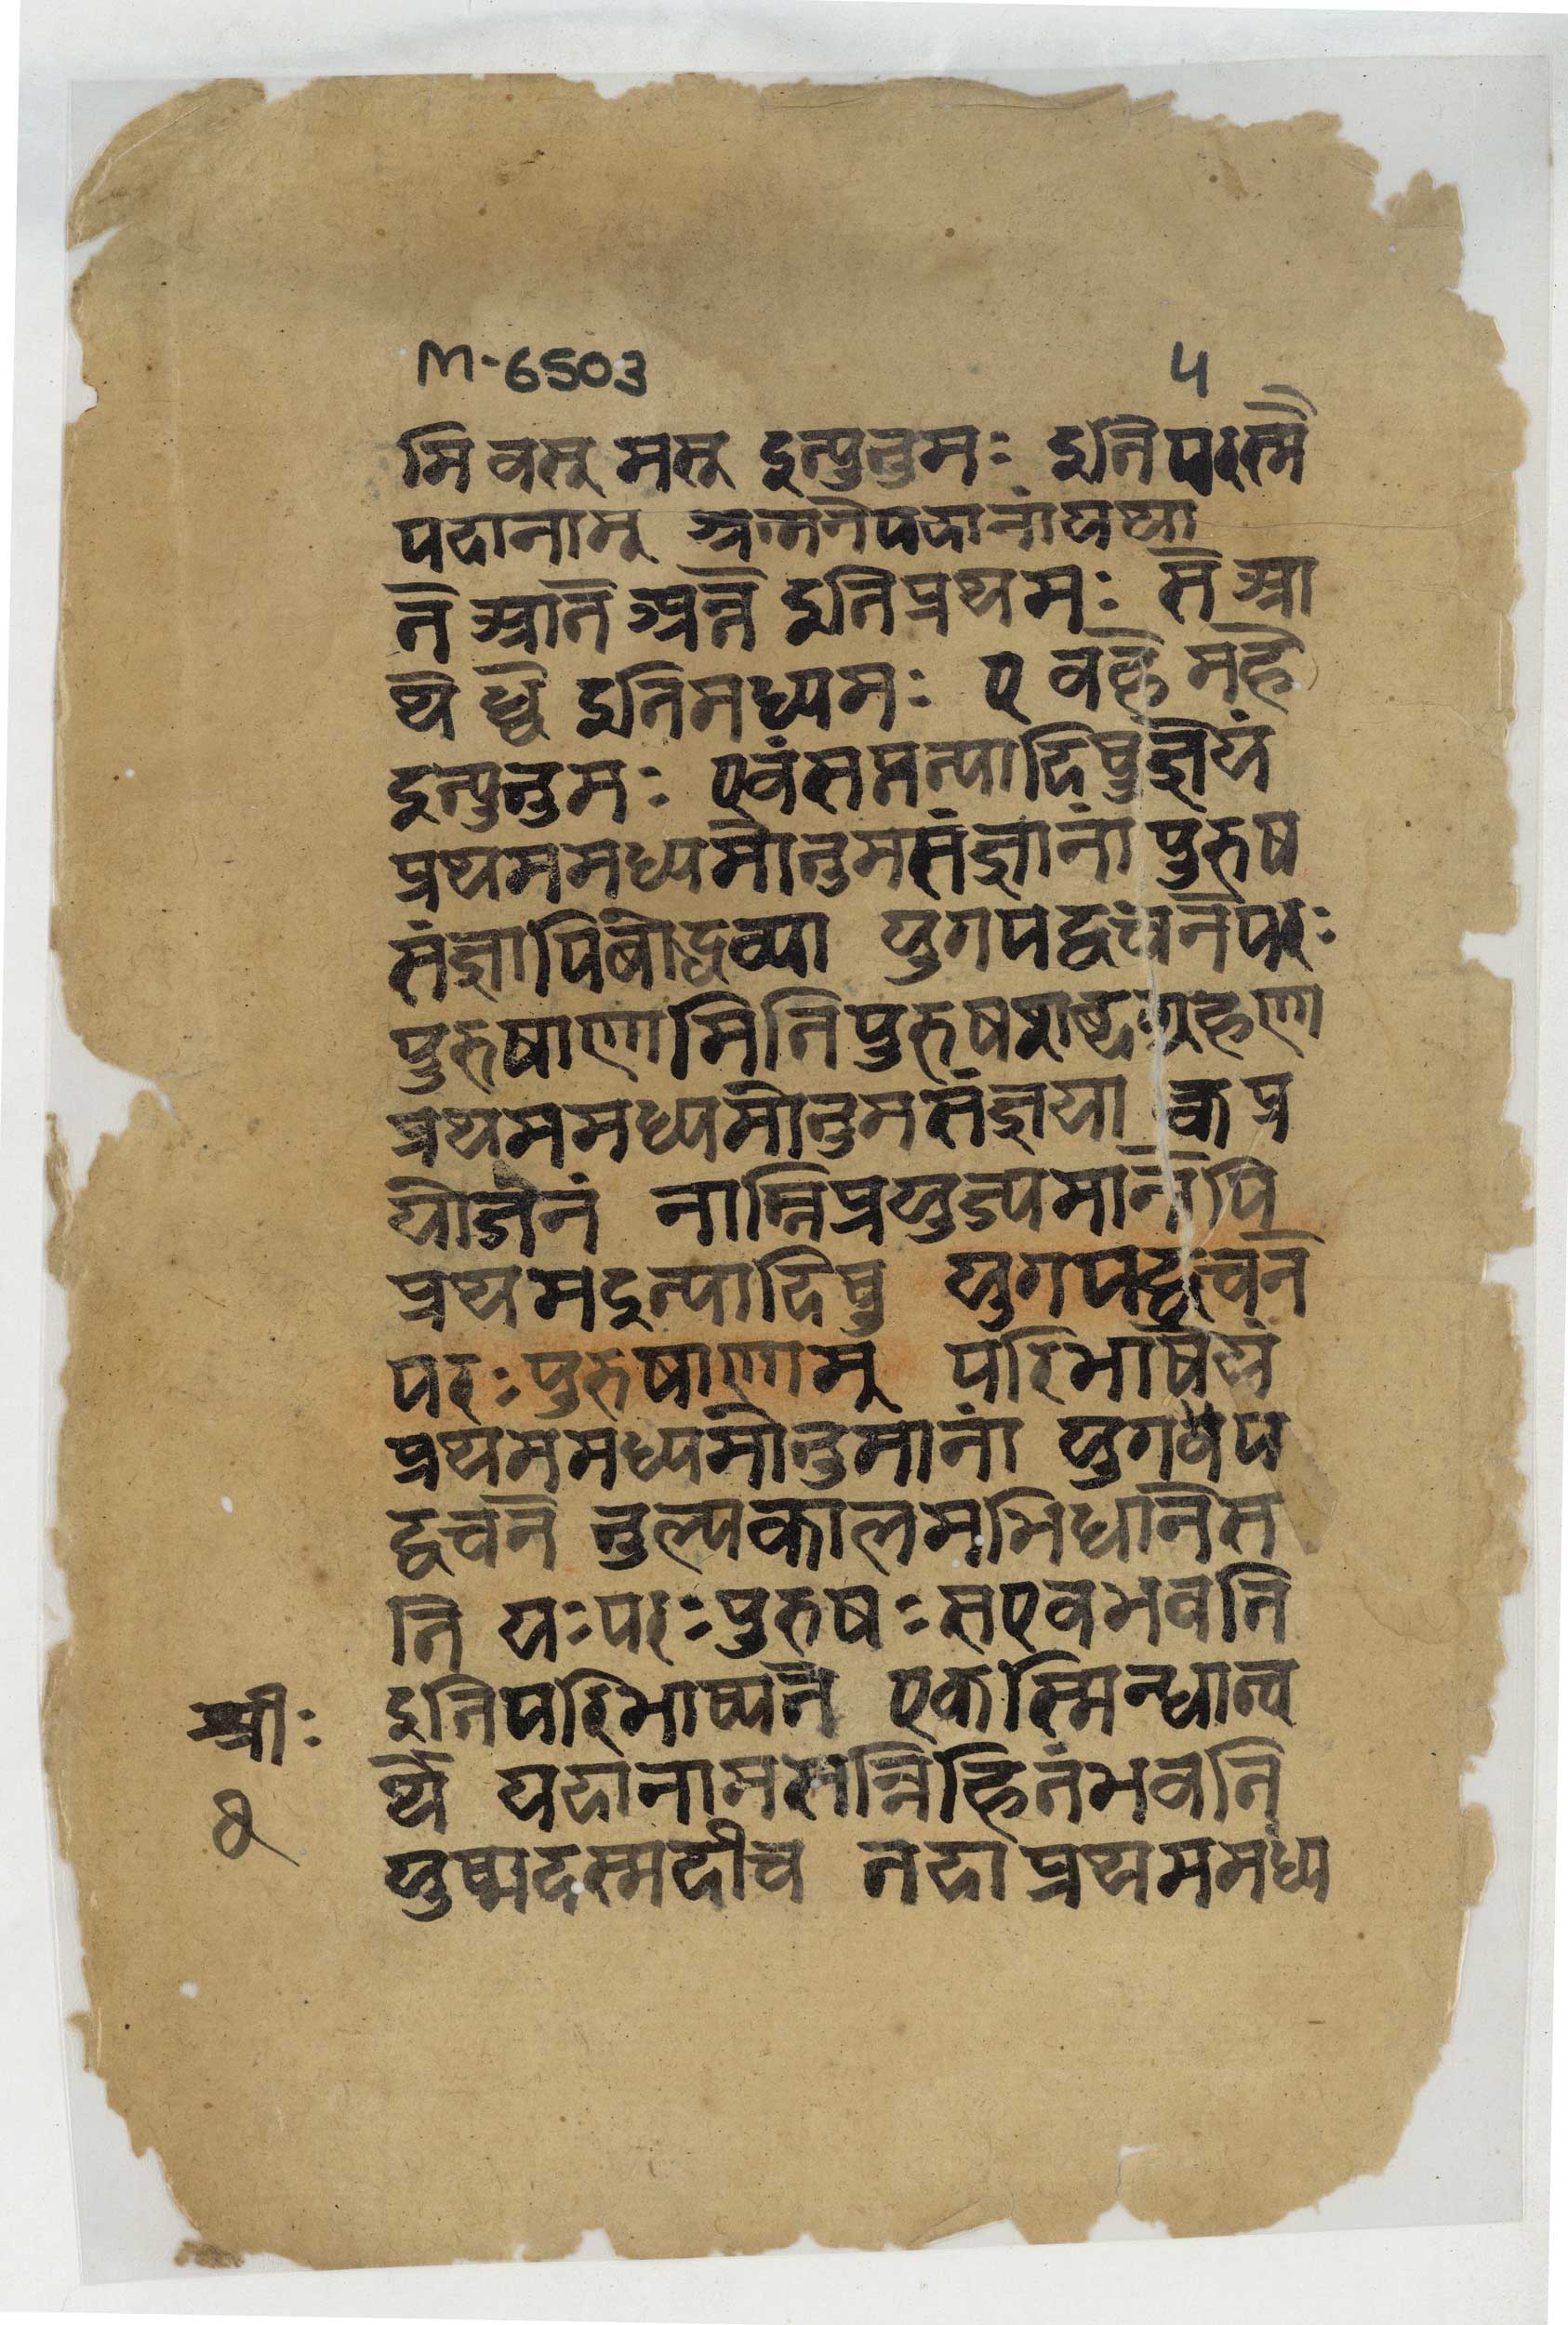 M-6503 ५
मि वस् मस् इत्युत्तमः इतिपरस्मै
पदानाम् आत्मनेपदानांयथा
ते आते अन्ते इतिप्रथमः से आ
थे ध्वे इतिमध्यमः ए वहे महे
इत्युत्तमः एवंसप्तत्यादिषुज्ञेयं
प्रथममध्यमोत्तमसंज्ञानां पुरुष
संज्ञापिबोद्धव्या युगपद्वचनेपरः
पुरुषाणामितिपुरुषशब्दग्रहण
प्रथममध्यमोत्तमसंज्ञया क प्र
योजनं नाम्निप्रयुज्यमानेपि
प्रथमइत्यादिषु युगपद्वचने
परःपुरुषाणाम् परिभाषेयं
प्रथममध्यमोत्तमानां युग प
द्वचने तुल्यकालमभिधानेस
ति यःपरःपुरुषःसएवभवति
इतिपरिभाष्यते एकस्मिन्धात्व
र्थे यदानामसन्निहितंभवति
युष्मदस्मदीच तदा प्रथममध्य
श्रीः